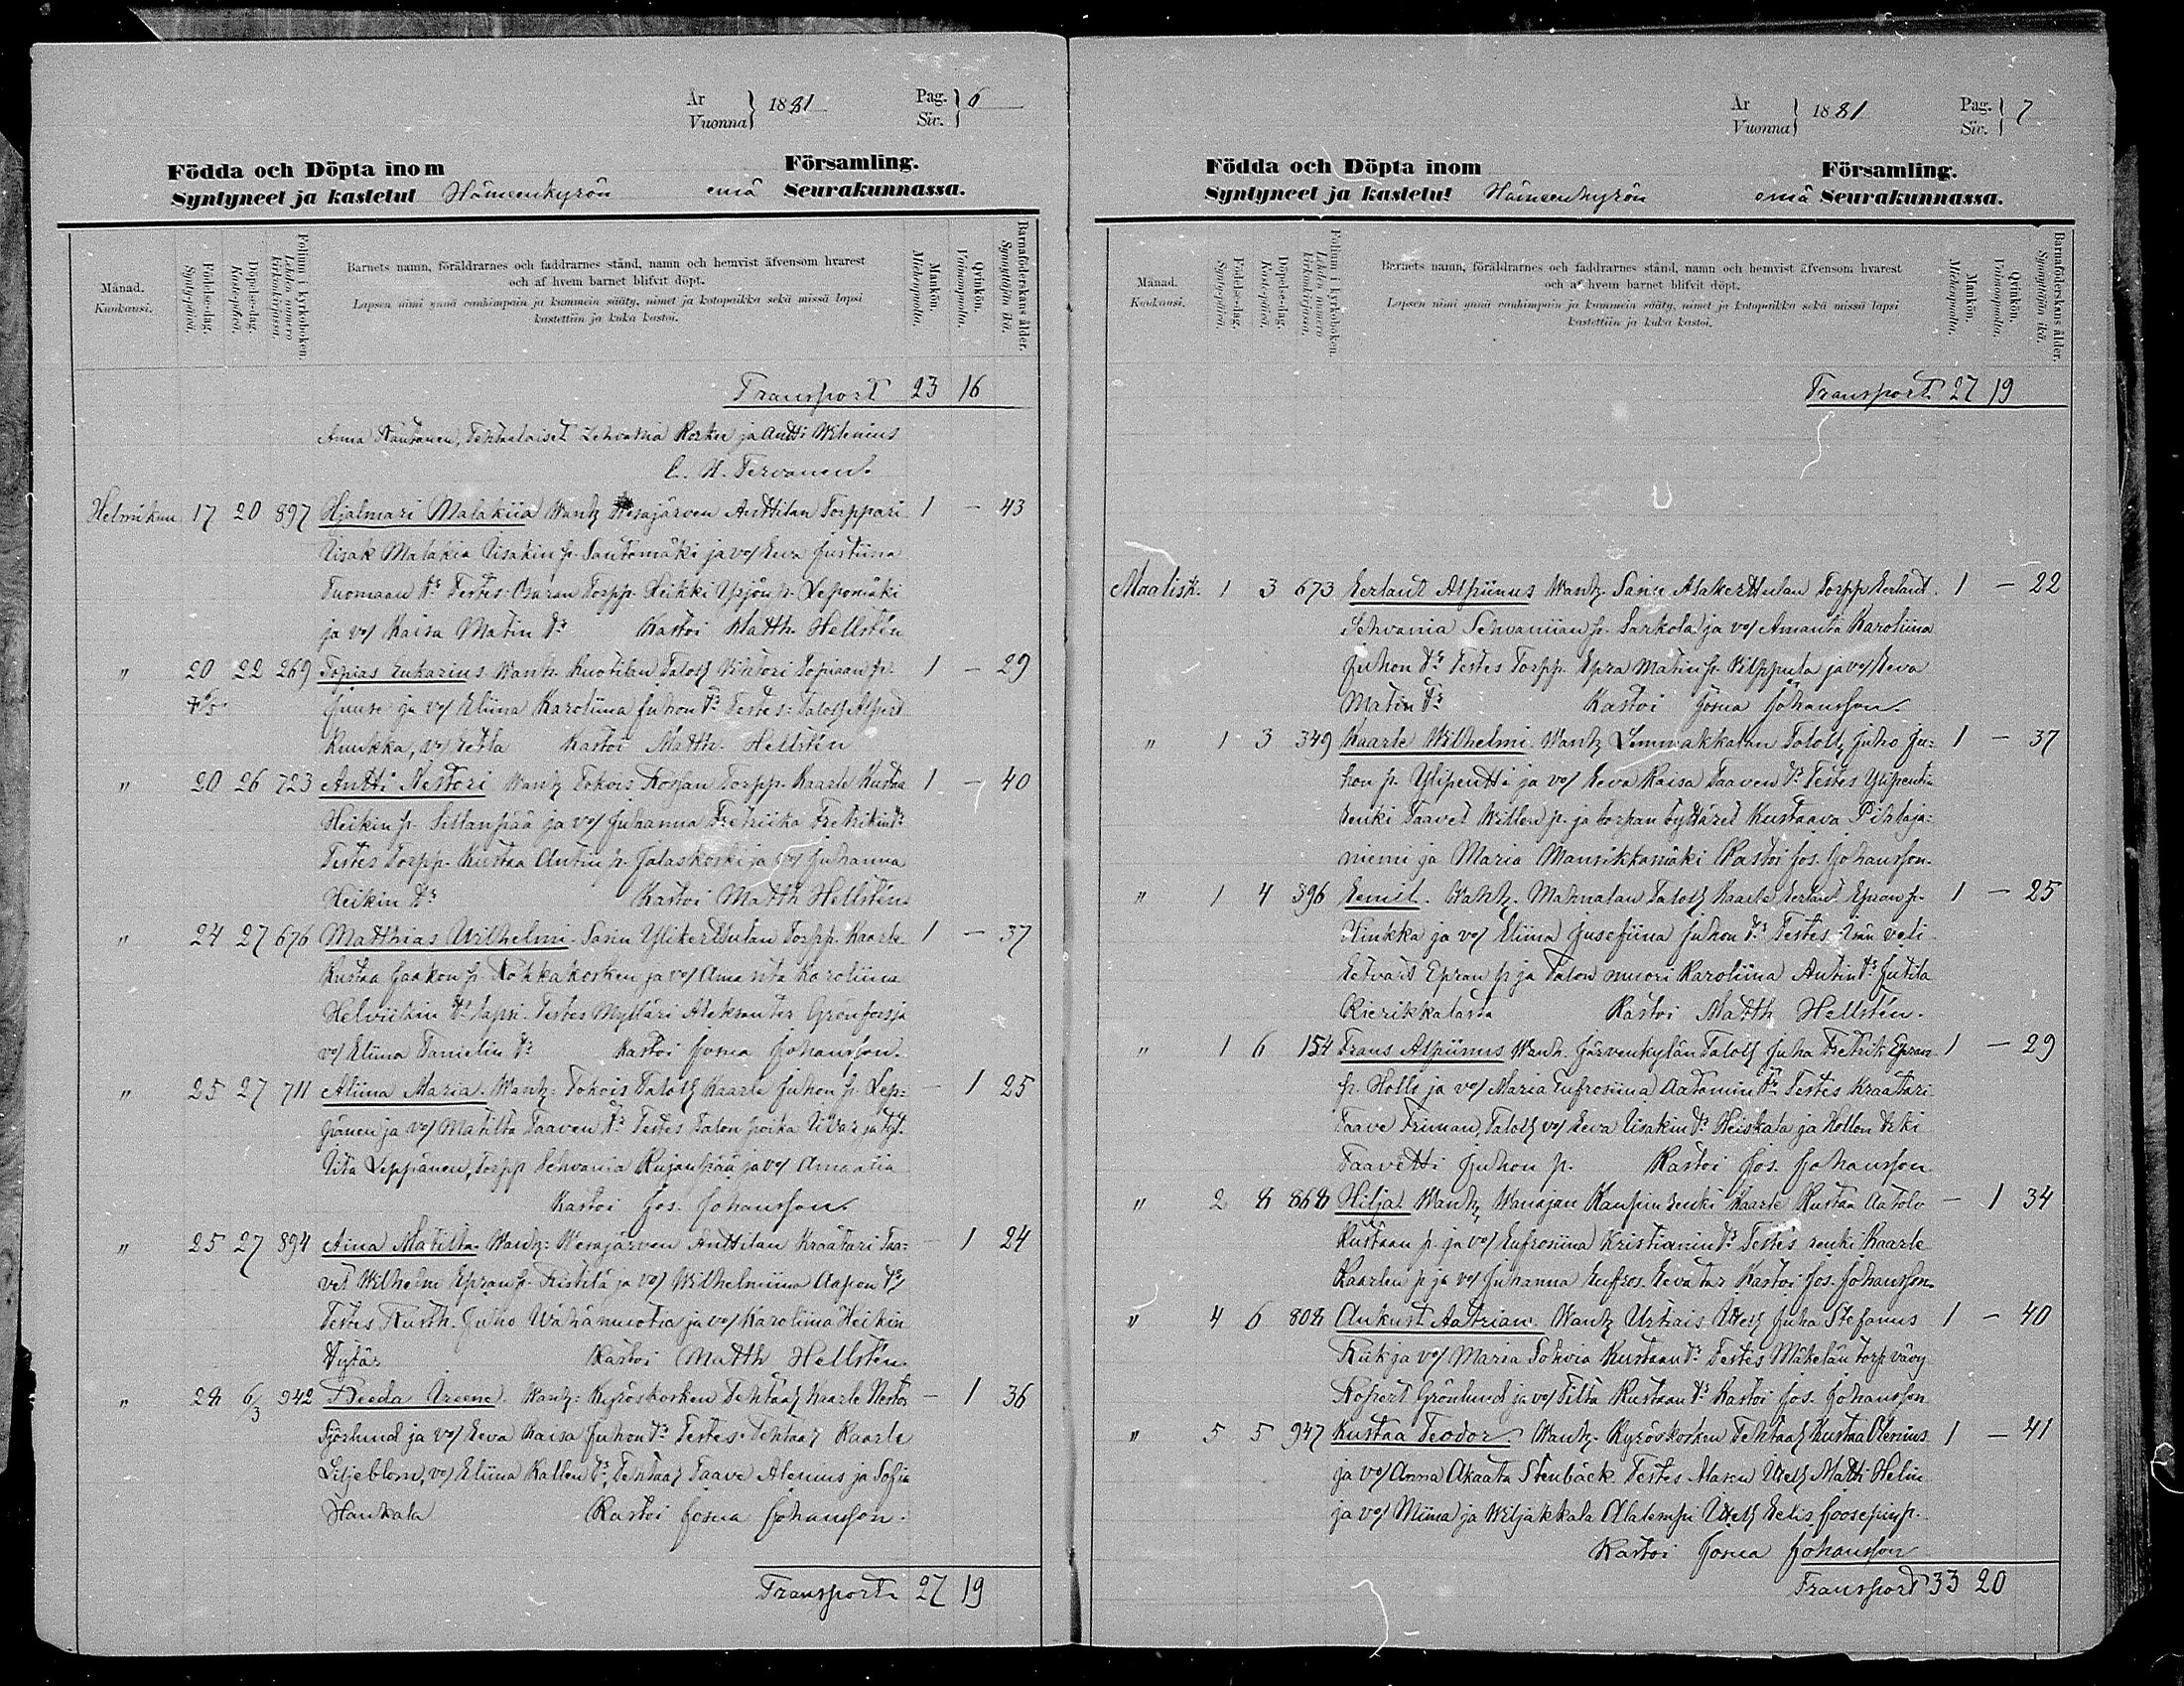 År
Vuonna } 1881 Pag.
Siv. } 6
Födda och Döpta inom Församling.
Syntyneet ja kastetut Hämeenkyrön emä Seurakunnassa.
Månad.
Kuukausi.
Födelse-dag.
Syntypäivä.
Döpelse-dag.
Kastepäivä.
Folium i kyrkoboken.
Lehden numero kirkonkirjassa.
Barnets namn, föräldrarnes och faddrarnes stånd, namn och hemvist äfvensom hvarest
och af hvem barnet blifvit döpt.
Lapsen nimi ynnä vanhimpain ja kummein sääty, nimet ja kotopaikka sekä missä lapsi
kastettiin ja kuka kastoi.
Mankön.
Miehenpuolta.
Qvinkön.
Vaimonpuolta.
Barnaföderskans ålder.
Synnyttäjän ikä.
Transport 23 16
Anna Räntänen, Tehtaalaiset Sehvania Korku ja Antti Vilenius
C. H. Tervanen.
Helmikuu 17 20 897 Hjalmari Malakiia Vanh. Vesajärven Anttilan Torppari 1 – 43
Iisak Malakia Iisakin p. Santamäki ja vo/ Eeva Justiina
Tuomaan tr. Testes: Osaran Torpp. Heikki Yrjön p. Leponiäki
ja vo/ Kaisa Matin tr. Kastoi Matth. Hellstén
" 20 22 269 Topias Eukarius Vanh. Kuotilan Taloll. Vihtori Topiaan p. 1 – 29
Juuse ja vo/ Eliina Karoliina Juhon tr. Testes: Taloll. Alpert
Kuukka, vo/ Eetla Kastoi Matth. Hellstén
" 20 26 723 Antti Nestori Vanh. Tokois Rosjan Torpp. Kaarle Kustaa 1 – 40
Heikin p. Sillanpää ja vo/ Juhanna Fretriika Fretrikin tr.
Testes Torpp. Kustaa Antin p. Jalaskoski ja vo/ Juhanna
Heikin tr. Kastoi Matth Hellstén
" 24 27 676 Matthias Wilhelmi. Sasin Ylikerttulan Torpp. Kaarle 1 – 37
Kustaa Jaakon p. Kokkakosken ja vo/ Amanta Karoliina
Helviitin tr. lapsi. Testes Mylläri Aleksanter Grönfors ja
vo/ Eliina Tanielin tr. Kastoi Josua Johansson.
" 25 27 711 Aliina Maria. Vanh: Tokois Taloll Kaarle Juhon p. Lep: – 1 25
pänen ja vo/ Matilta Taaven tr. Testes Talon poika Iivar ja tyt.
Iita Leppänen, Torpp Sehvania Rujanpää ja vo/ Amaalia
Kastoi Jos. Johansson.
" 25 27 894 Aina Matilta. Vanh: Vesajärven Anttilan Kraatari Taa: – 1 24
vet Wilhelm Epran p. Ristilä ja vo/ Wilhelmiina Aapon tr,
Testes Rusth. Juho Vähänuotia ja vo/ Karoliina Heikin
tytär Kastoi Matth Hellstén
" 28 6/3 942 Freeda Ireene. Vanh: Kyröskosken Tehtaal Kaarle Nestor – 1 36
Sjörlund ja vo/ Eeva Kaisa Juhon tr. Testes: Tehtaal Kaarle
Liljeblom, vo/ Eliina Kallen tr, Tehtaal Taave Alenius ja Sofia
Hankala Kastoi Josua Johansson.
Transport 27 19
År
Vuonna } 1881 Pag.
Siv. } 7
Födda och Döpta inom Församling.
Syntyneet ja kastetut Hämeenkyrön emä Seurakunnassa.
Månad.
Kuukausi.
Födelse-dag.
Syntypäivä.
Döpelse-dag.
Kastepäivä.
Folium i kyrkoboken.
Lehden numero kirkonkirjassa.
Barnets namn, föräldrarnes och faddrarnes stånd, namn och hemvist äfvensom hvarest
och af hvem barnet blifvit döpt.
Lapsen nimi ynnä vanhimpain ja kummein sääty, nimet ja kotopaikka sekä missä lapsi
kastettiin ja kuka kastoi.
Mankön.
Miehenpuolta.
Qvinkön.
Vaimonpuolta.
Barnaföderskans ålder.
Synnyttäjän ikä.
Transport 27 19
Maalisk. 1 3 673 Eerlant Alpiinus Vanh. Sasin Alakerttulan Torpp Eerlant 1 – 22
Sehvania Sehvaniian p. Sarkola ja vo/ Amanta Karoliina
Juhon tr. Testes Torpp. Epra Matin p. Kilppula ja vo/ Eeva
Matin tr. Kastoi Josua Johansson.
" 1 3 349 Kaarle Wilhelmi. Vanh. Lemmakkalan Taloll. Juho Ju: 1 – 37
hon p. Ylipentti ja vo/ Eeva Kaisa Taaven tr. Testes Ylipentin
renki Taavet Willen p. ja torpan tyttäret Kustaava Pihlaja:
niemi ja Maria Mansikkamäki Kastoi Jos. Johansson.
" 1 4 396 Eemil. Vanh. Mahnalan Taloll Kaarle Eerlant Epran p. 1 – 25
Hinkka ja vo/ Eliina Jusefiina Juhon tr. Testes isän veli
Eetvart Epran p ja talon muori Karoliina Antin tr. Jutila
Kierikkalasta Kastoi Matth Hellstén.
" 1 6 154 Frans Alpiinus Vanh. Järvenkylän Taloll Juha Fretrik Epran 1 – 29
p. Hollo ja vo/ Maria Eufrosiina Aatamin tr. Testes Kraatari
Taave Friman, Taloll vo/ Eeva Iisakin tr Heiskala ja Hollon Erki
Taavetti Juhon p. Kastoi Jos. Johansson
" 2 8 868 Hilja Vanh. Vanajan Kaupin renki Kaarle Kustaa Aatolv – 1 34
Kustaan p. ja vo/ Eufrosiina Kristianin tr. Testes renki Kaarle
Kaarlen p ja vo/ Juhanna Eufros. Eevatar Kastoi Jos. Johansson.
" 4 6 808 Aukust Aatrian. Vanh. Urtiais Itsell Juha Stefanus 1 – 40
Riik ja vo/ Maria Sohvia Kustaan tr. Testes Mäkelän torp vävy
Ropert Grönlund ja vo/ Tilta Kustaan tr. Kastoi Jos. Johansson
" 5 5 947 Kustaa Teodor. Vanh. Kyröskosken Tehtaal Kustaa Olenius 1 – 41
ja vo/ Anna Akaata Stenbäck. Testes Masen Itsell Matti Helin
ja vo/ Miina ja Viljakkala Alalempi Itsell Eelis Joosepin p.
Kastoi Josua Johansson
Transport 33 20